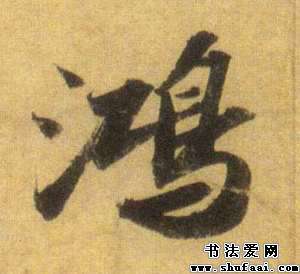 鸿
书法爱网
www.shufaai.com